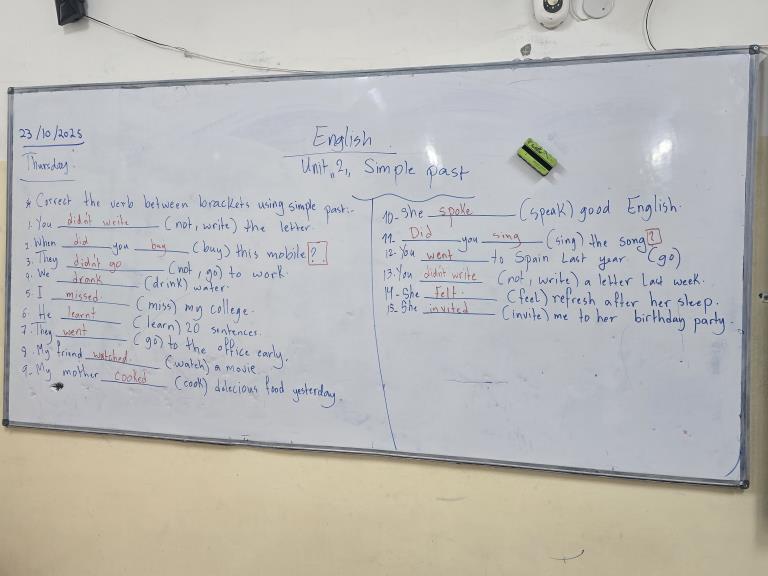 23/10/2025
Thursday.
English
Unit "2", Simple past
* Correct the verb between brackets using simple past:-
1. You didn't write (not, write) the letter.
2. When did you buy (buy) this mobile?
3. They didn't go (not, go) to work.
4. We drank (drink) water.
5. I missed (miss) my college.
6. He learnt (learn) 20 sentences.
7. They went (go) to the office early.
8. My friend watched (watch) a movie.
9. My mother cooked (cook) dalecious food yesterday.
10- She spoke (speak) good English.
11. Did you sing (sing) the song?
12. You went to Spain Last year (go)
13. You didn't write (not, write) a letter Last week.
14- She felt (feel) refresh after her sleep.
15- She invited (invite) me to her birthday party.